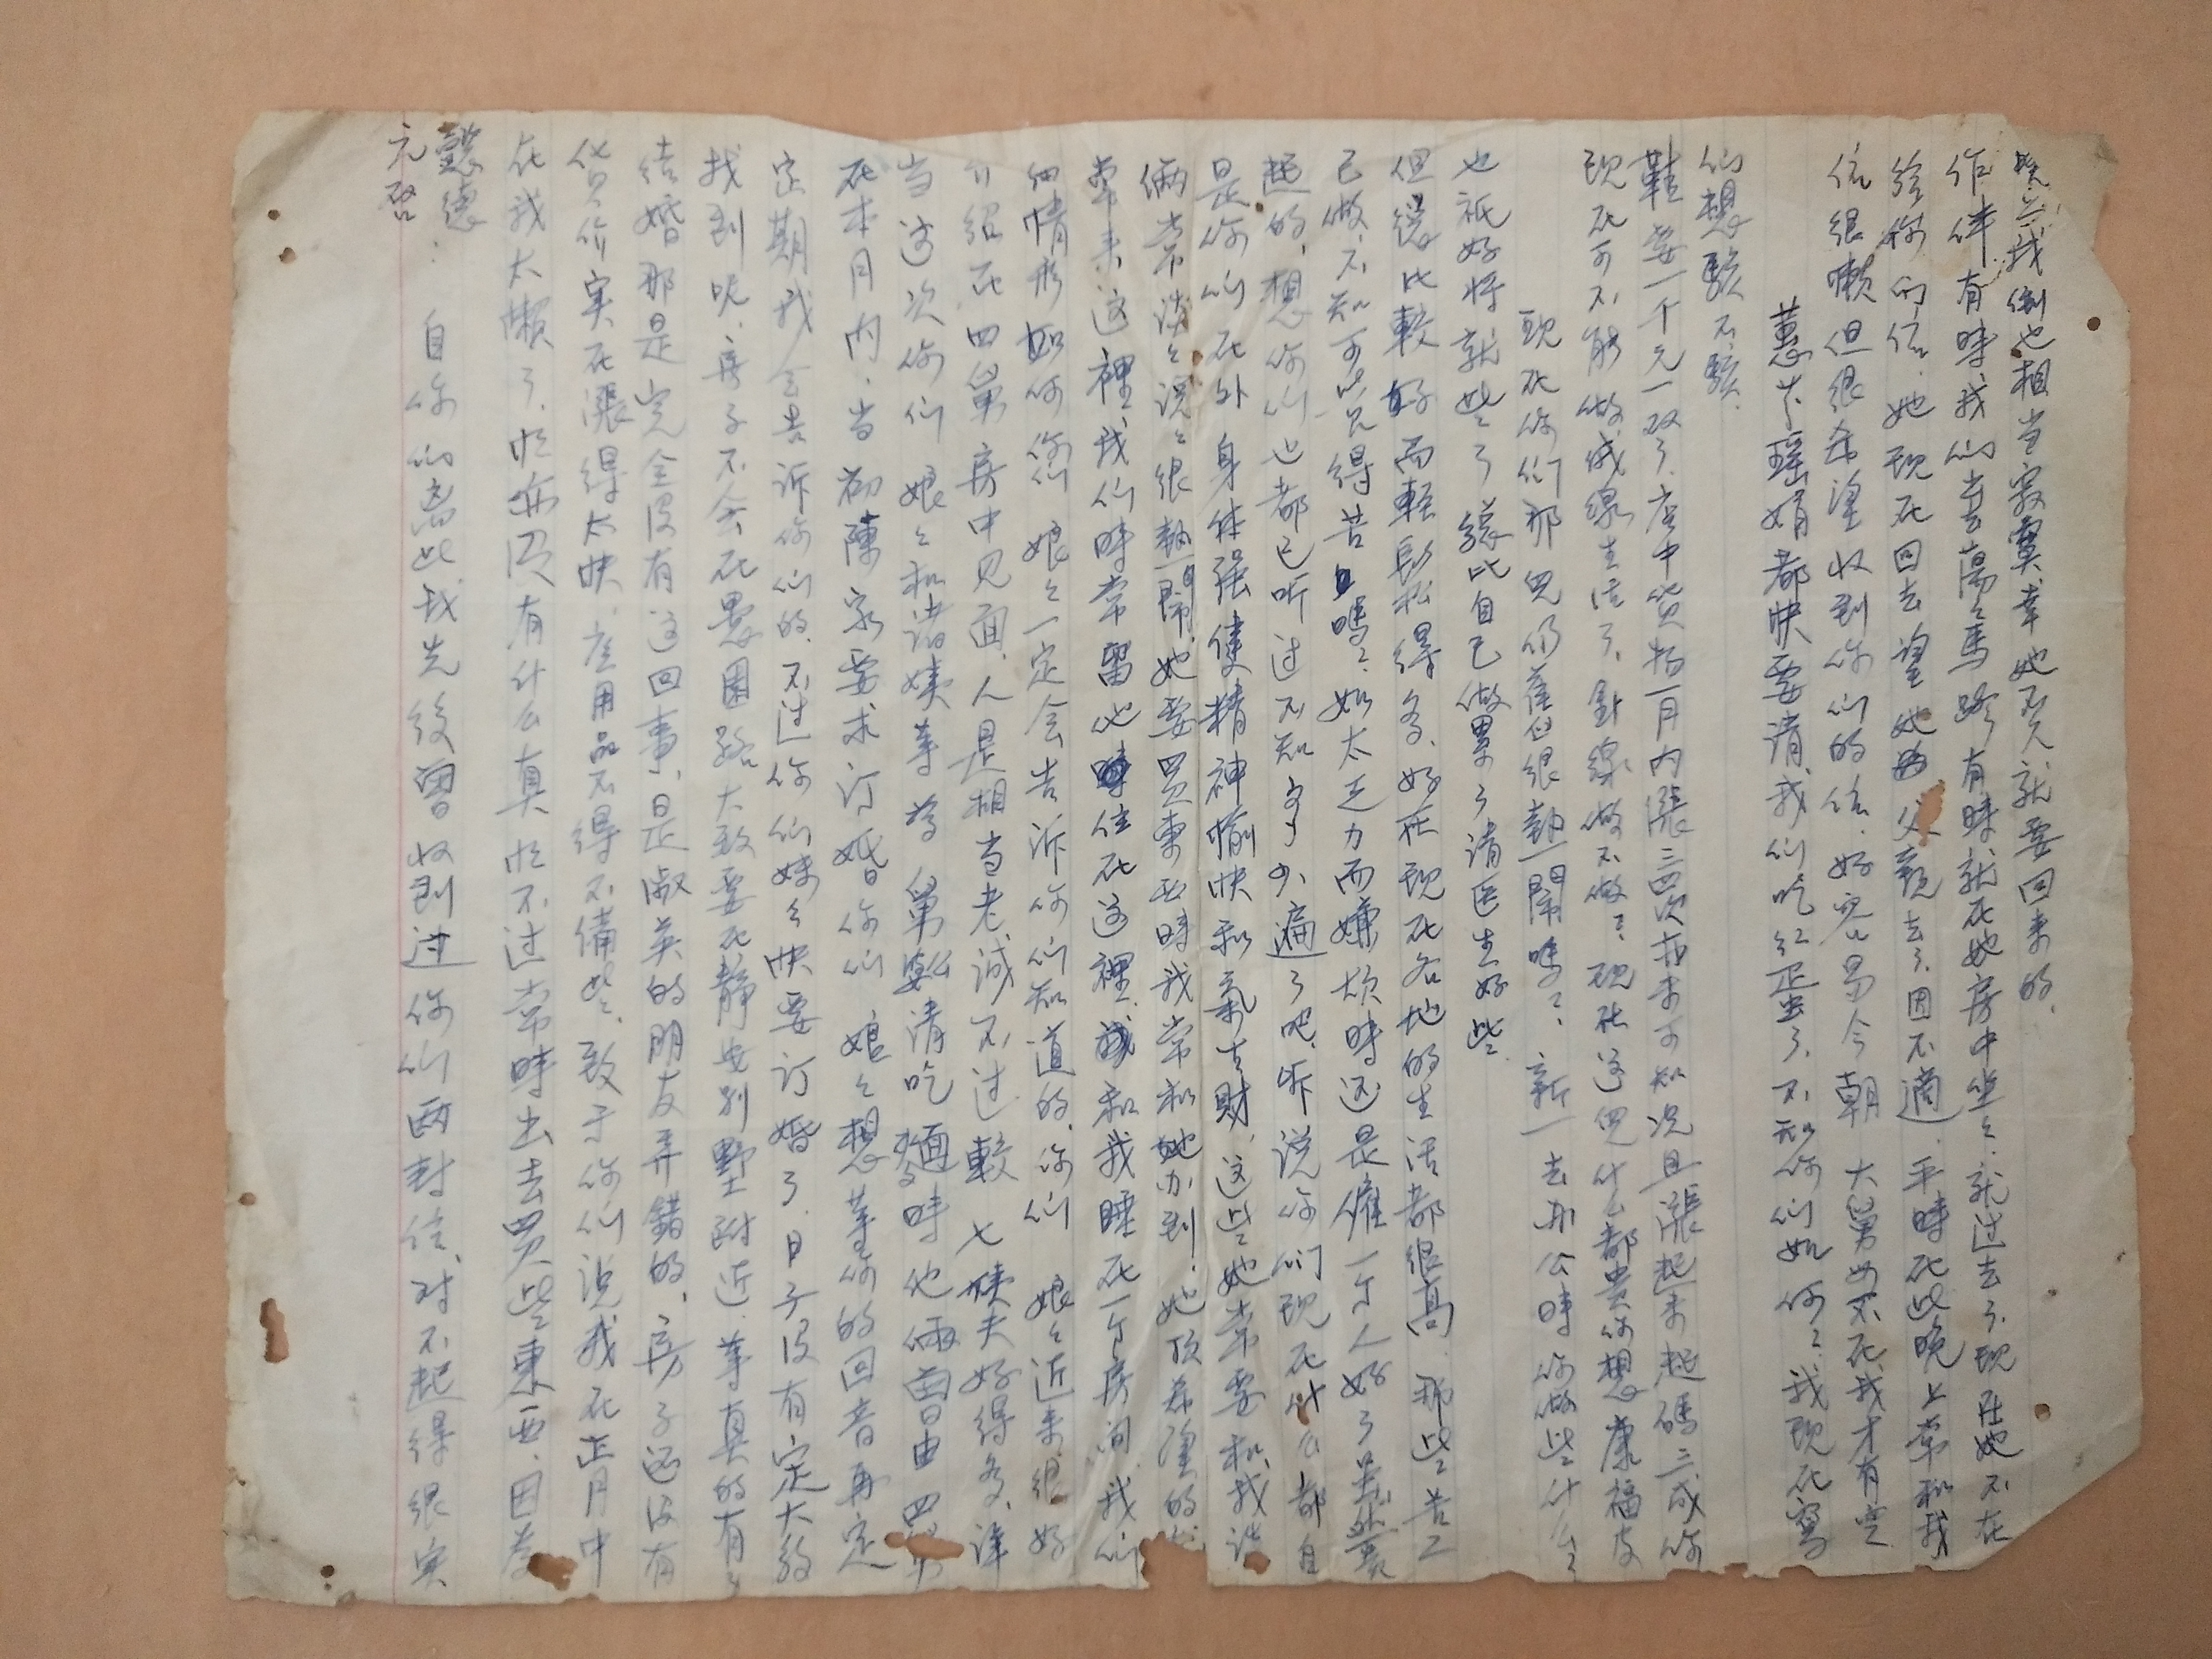 懿德
元啓 : 自你们离此我先後曾收到过你们两封信、对不起得很实
在我太懒了、忙亦没有什么真忙不过常時出去買些東西、因为
货价实在漲得太快、应用品不得不備些、致于你们说我在正月中
结婚那是完全没有这回事、是淑英的朋友弄錯的、房子还没有
找到呢、房子不会在愚園路大致要在静安别墅附近、等真的有了
定期我会告诉你们的、不过你们妹々快要订婚了、日子没有定大約
在本月内、当初陳家要求订婚你们娘々想等你的回音再定
当这次你们娘々和诸姨等为舅婆请吃麵時他倆曾由四舅
介绍在四舅房中见面、人是相当老诚不过較七姨夫好得多、详
细情形如何你们娘々一定会告诉你们知道的、你们娘々近来很好
常来这裡、我们時常留他住在这裡、和我睡在一个房间、我们
倆常谈々说々很熱鬧、她要買東西時我常和她办到！她顶希望的
是你们在外身体强健精神愉快和氣生财、这些她常要和我说
起的、想你们也都已听过不知多少遍了吧、听说你们现在什么都自
已做、不知可吃得苦嗎？如太乏力而嫌烦時还是僱一个人好了虽然費
但總比較好而輕鬆得多、好在现在各地的生活都很高、那些苦工
也祇好将就些了總比自己做累了请医生好些
现在你们那兒仍舊很熱鬧嗎？新一去办公時你做些什么？
现在可不能做绒線生活了、針線做不做？现在这兒什么都貴你想康福皮
鞋要一千元一双了、店中货物一月内漲三四次 可知况且漲起来起碼三成你
们想駭不駭、
蕙芬瑶娟都快要请我们吃红蛋了、不知你们如何？我现在寫
信很懒但很希望收到你们的信、好容易今朝大舅母不在我才有空
给你们信、她现在回去望她 父親去了、因不適、平時在此晚上常和我
作伴有時我们去蕩々馬路有時就在她房中坐々就过去了、现在她不在
我倒也相当寂寞幸她不久就要回来的、